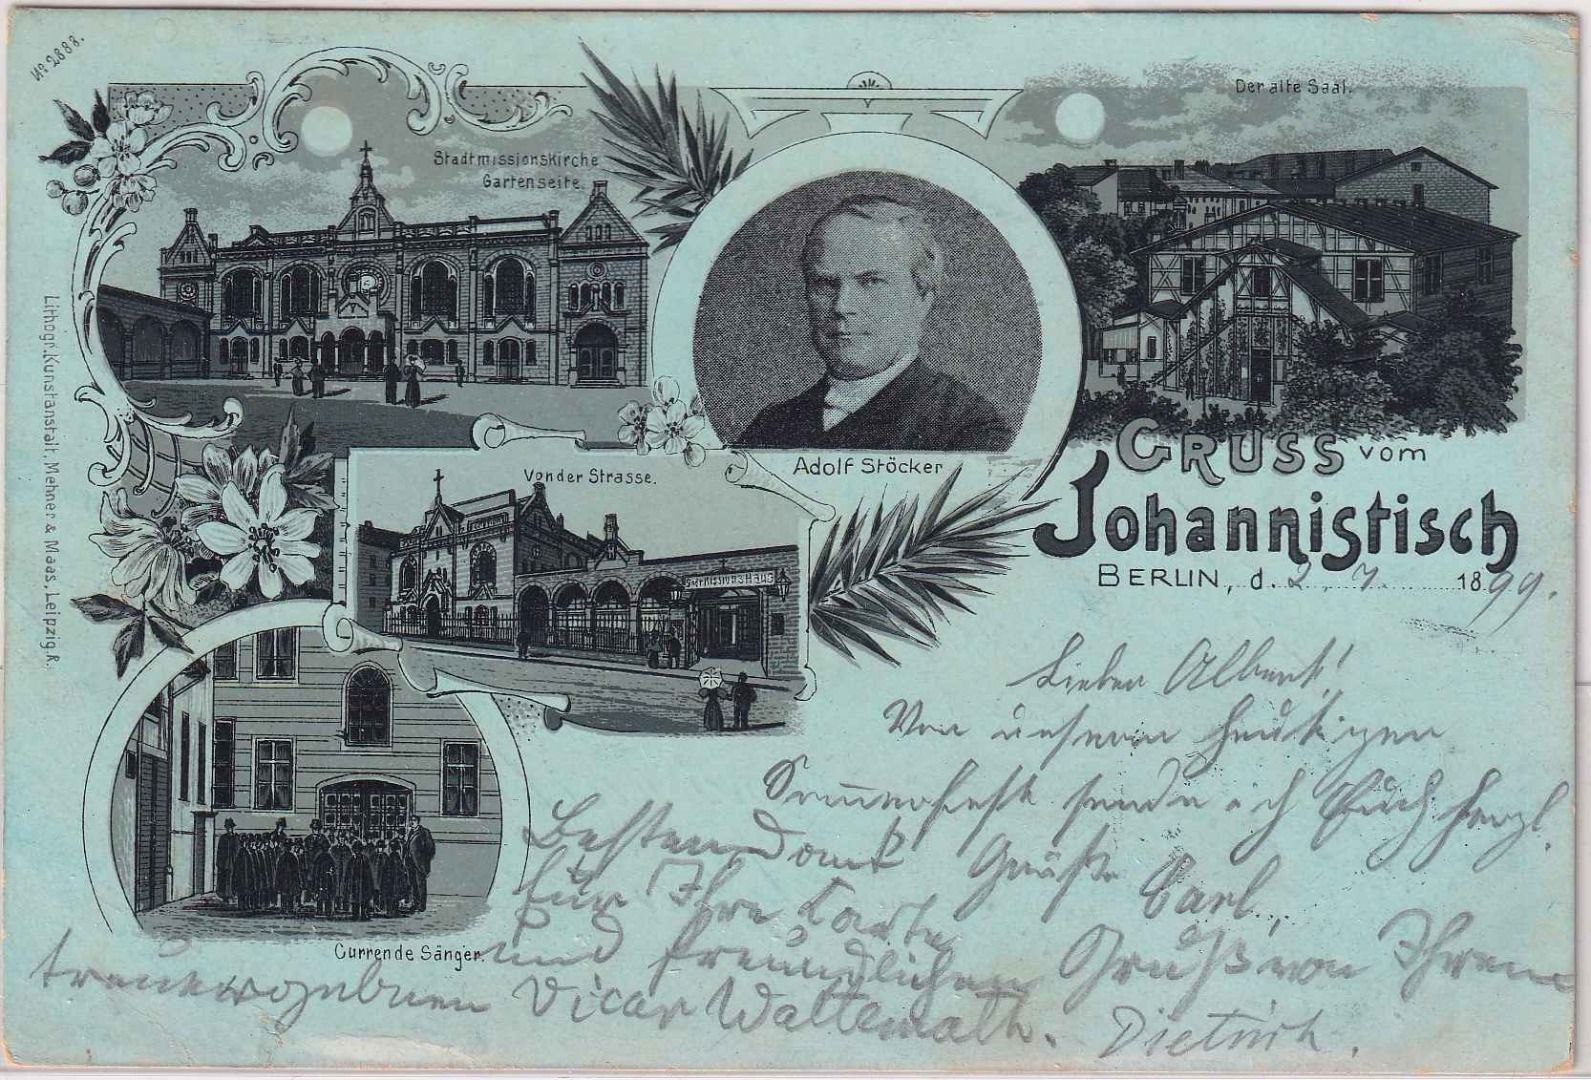 No 2888.
Stadtmissionskirche
Gartenseite.
Der alte Saal.
Adolf Stöcker
Von der Strasse.
Stadtmissionshaus
Gruss vom
Johannistisch
Berlin, d. 2. 7. 1899.
Currende Sänger.
Lithogr. Kunstanstalt, Mehner & Maas, Leipzig R.
Lieber Albert!
Von unserm heutigen
Sommerfest sende ich Euch herzl.
Grüße Carl,
Besten Dank
für Ihre Karte
und freundlichen Gruß von Ihrem
treuergebenen Vicar Waltemath.
Dietrich.